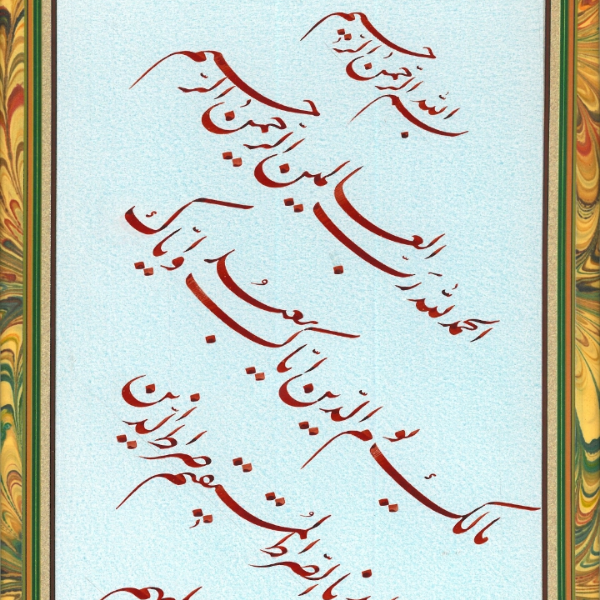 بسم الله الرّحمن الرّحیم
الحمد لله ربّ العالمین الرّحمن الرّحیم
مالک یوم الدّین ایّاک نعبد و ایّاک
الصّراط المستقیم صراط الّذین